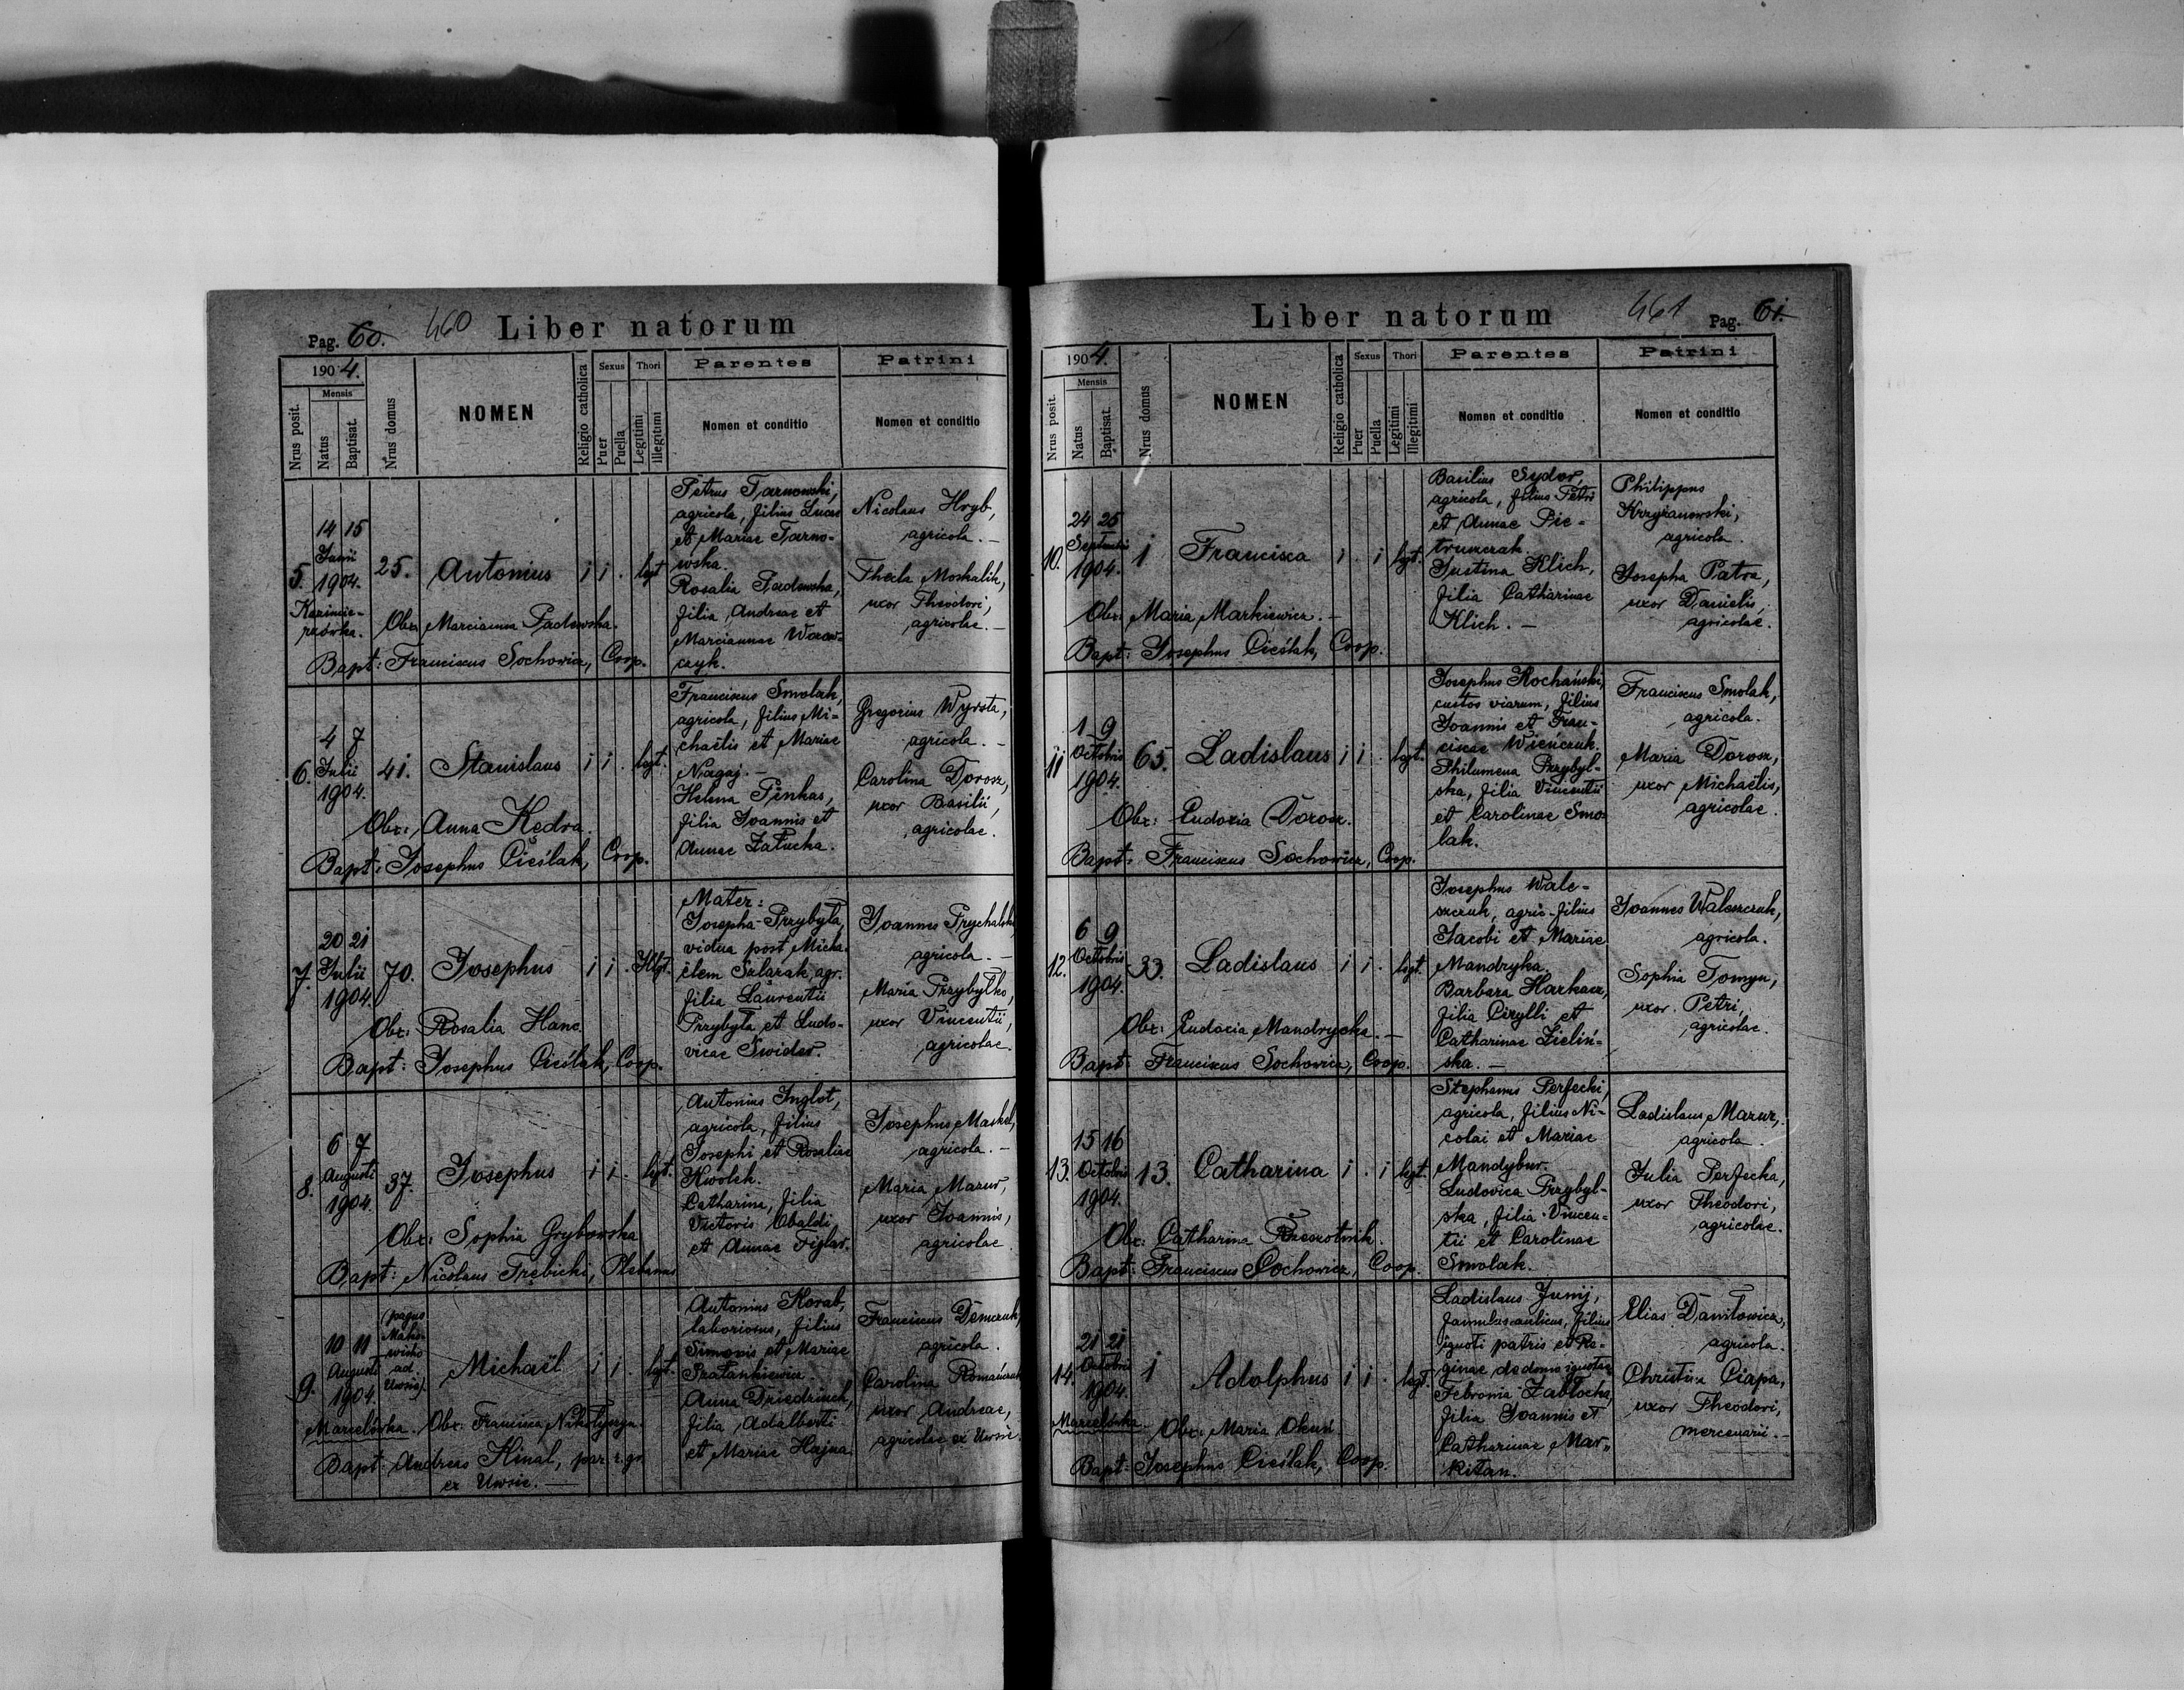 Pag. 60. 460 Liber natorum
1904.
Mensis
Nrus posit.
Natus
Baptisat.
Nrus domus
NOMEN
Religio catholica
Sexus
Puer
Puella
Thori
Legitimi
Illegitimi
Parentes
Nomen et conditio
Patrini
Nomen et conditio
5.
14 15
Junii
1904.
Kazimie-
rzówka.
25.
Antonius
i i . legt.
Petrus Tarnowski,
agricola, filius Lucae
et Mariae Tarno-
wska.
Rosalia Padowska,
filia Andreae et
Mariannae Wawr-
czyk.
Nicolaus Hryb,
agricola. -
Thecla Moskalik,
uxor Theodori,
agricolae. -
Obx: Marcianna Padowska.
Bapt: Franciscus Sochowicz, Coop.
6.
4 7
Julii
1904.
41.
Stanislaus
i i . legt.
Franciscus Smolak,
agricola, filius Mi-
chaëlis et Mariae
Nagaj. -
Helena Pinkas,
filia Joannis et
Annae Załucka.
Gregorius Wyrsta,
agricola. -
Carolina Dorosz,
uxor Basilii,
agricolae.
Obx: Anna Kędra.
Bapt: Josephus Cieślak, Coop.
7.
20 21
Julii
1904.
70.
Josephus
i i . Illgt.
Mater:
Josepha Przybyła,
vidua post Micha-
ëlem Salarak agr.
filia Laurentii
Przybyła et Ludo-
vicae Świder.
Joannes Prychalski
agricola. -
Maria Przybyłko,
uxor Vincentii,
agricolae.
Obx: Rosalia Hanc.
Bapt: Josephus Cieślak, Coop.
8.
6 7
Augusti
1904.
37.
Josephus
i i . legt.
Antonius Inglot,
agricola, filius
Josephi et Rosaliae
Kwolek.
Catharina, filia
Victoris Obaldi
et Annae Figlar.
Josephus Maskel,
agricola. -
Maria Mazur,
uxor Joannis,
agricolae.
Obx: Sophia Grybowska
Bapt: Nicolaus Trębicki, Plebanus
9.
10 11
Augusti
1904.
Marcelówka.
(pagus
ad
Uwsie).
Michaël
i i . legt.
Antonius Korab,
laboriosus, filius
Simonis et Mariae
Szałankiewicz.
Anna Driedzinch,
filia Adalberti
et Mariae Hajna.
Franciscus Demczuk,
agricola.
Carolina Romańczuk
uxor Andreae,
agricolae ex Uwsie.
Obx: Francisca Nikołyszyn.
Bapt: Andreas Kinal, par. r. gr.
ex Uwsie. -
Liber natorum 461 Pag. 61.
1904.
Mensis
Nrus posit.
Natus
Baptisat.
Nrus domus
NOMEN
Religio catholica
Sexus
Puer
Puella
Thori
Legitimi
Illegitimi
Parentes
Nomen et conditio
Patrini
Nomen et conditio
10.
24 25
Septembris
1904.
1
Francisca
i . i legt.
Basilius Sydor,
agricola, filius Petri
et Annae Pie-
truszczak.
Justina Klich,
filia Catharinae
Klich. -
Philippus
Krzyżanowski,
agricola.
Josepha Patra,
uxor Danielis,
agricolae.
Obx: Maria Markiewicz. -
Bapt: Josephus Cieślak, Coop.
11
1 9
Octobris
1904.
65.
Ladislaus
i i . legt.
Josephus Kochański,
custos viarum, filius
Joannis et Fran-
ciscae Wieńczuk.
Philumena Przybyl-
ska, filia Vincentii
et Carolinae Smo-
lak.
Franciscus Smolak,
agricola.
Maria Dorosz,
uxor Michaëlis,
agricolae.
Obx: Eudoxia Dorosz.
Bapt: Franciscus Sochowicz, Coop.
12.
6 9
Octobris
1904.
33.
Ladislaus
i i . legt.
Josephus Wale-
szczuk, agric. filius
Jacobi et Mariae
Mandryka.
Barbara Harkacz,
filia Cirylli et
Catharinae Zieliń-
ska. -
Joannes Waleszczuk,
agricola.
Sophia Tomyn,
uxor Petri,
agricolae.
Obx: Eudocia Mandrycka. -
Bapt: Franciscus Sochowicz, Coop.
13.
15 16
Octobris
1904.
13.
Catharina
i . i legt.
Stephanus Perfecki,
agricola, filius Ni-
colai et Mariae
Mandybur.
Ludovica Przybyl-
ska, filia Vincen-
tii et Carolinae
Smolak.
Ladislaus Mazur,
agricola.
Julia Perfecka,
uxor Theodori,
agricolae.
Obx: Catharina Rzeszotnik.
Bapt: Franciscus Sochowicz, Coop.
14.
21 21
Octobris
1904.
Marcelówka
1
Adolphus
i i . legt.
Ladislaus Jumj,
famulus aulicus, filius
ignoti patris et Re-
ginae de domo ignotae
Febronia Zabłocka,
filia Joannis et
Catharinae Mar-
kitan.
Elias Daniłowicz,
agricola.
Christina Ciapa,
uxor Theodori,
mercenarii. -
Obx: Maria Okuń
Bapt: Josephus Cieślak, Coop.